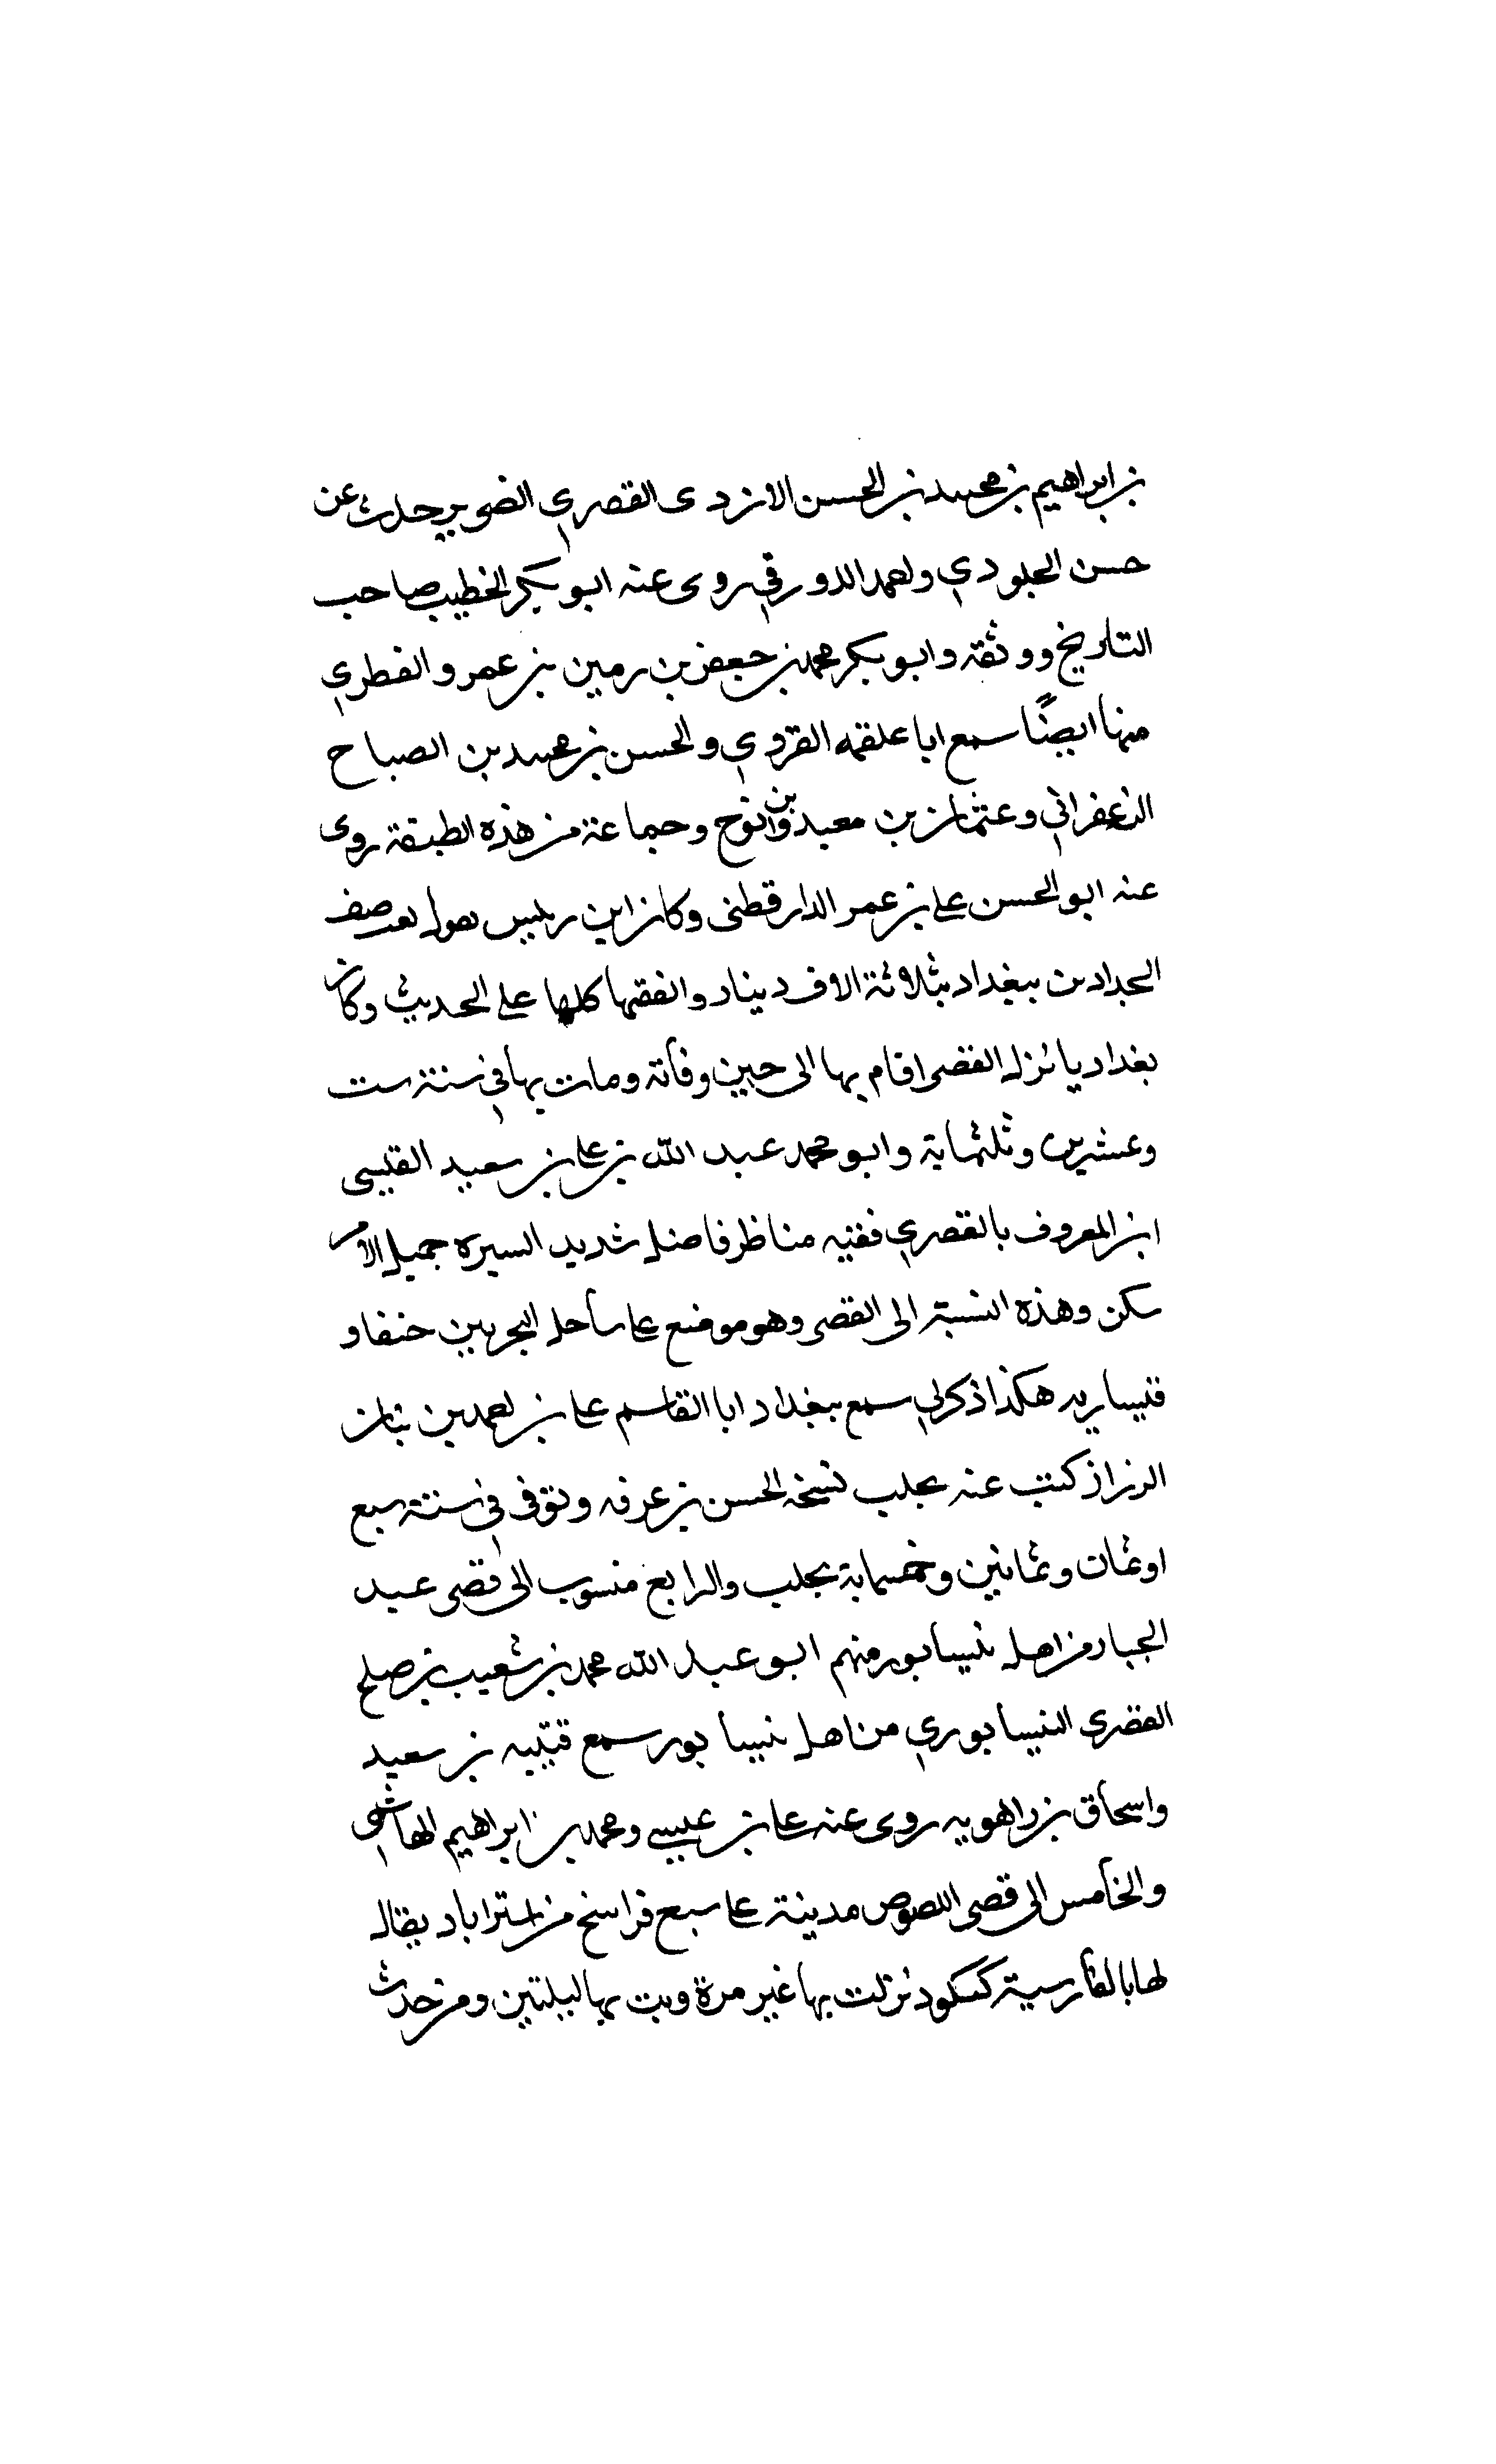 بن ابراهيم بن محمد بن الحسن الازدى القصري الضرير حدث عن
حسن الجلودي واحمد الدورقي روى عنه ابو بكر الخطيب صاحب
التاريخ ووثقه وابو بكر محمد بن جعفر بن رميس بن عمرو القصري
منها ايضًا سمع ابا علقمه الفروي والحسن بن محمد بن الصباح
الزعفراني وعثمان بن معبد بن نوح وجماعة من هذه الطبقة روى
عنه ابو الحسن على بن عمر الدارقطنى وكان ابن رميس يقول بعت صف
الحدادين ببغداد بثلاثة الاف دينار وانفقتها كلها على الحديث وكان
بغداديا نزل القصر اقام بها الى حين وفاته ومات بها في سنة ست
وعشرين وثلثماية وابو محمد عبد الله بن على بن سعيد القيسى
ابن المعروف بالقصري فقيه مناظر فاضل شديد السيرة جميل الامر
سكن وهذه النسبة الى القصر وهو موضع على ساحل البحر بين حنفا و
قيساريه هكذا ذكر لي سمع ببغداد ابا القاسم على بن احمد بن بيان
الرزاز كتب عنه بحلب نسخة الحسن بن عرفه وتوفى في سنة سبع
اوثمان وثمانين وخمسماية بحلب والرابع منسوب الى قصر عبد
الجبار من اهل نيسابور منهم ابو عبد الله محمد بن شعيب بن صلح
القصري النيسابوري من اهل نيسابور سمع قتيبه بن سعيد
واسحاق بن راهويه روى عنه على بن عيسى ومحمد بن ابراهيم الهاشمى
والخامس الى قصر اللصوص مدينة على سبع فراسخ من استراباد يقال
لها بالفارسية كنكور نزلت بها غير مرة وبت بها ليلتين ومن حدث